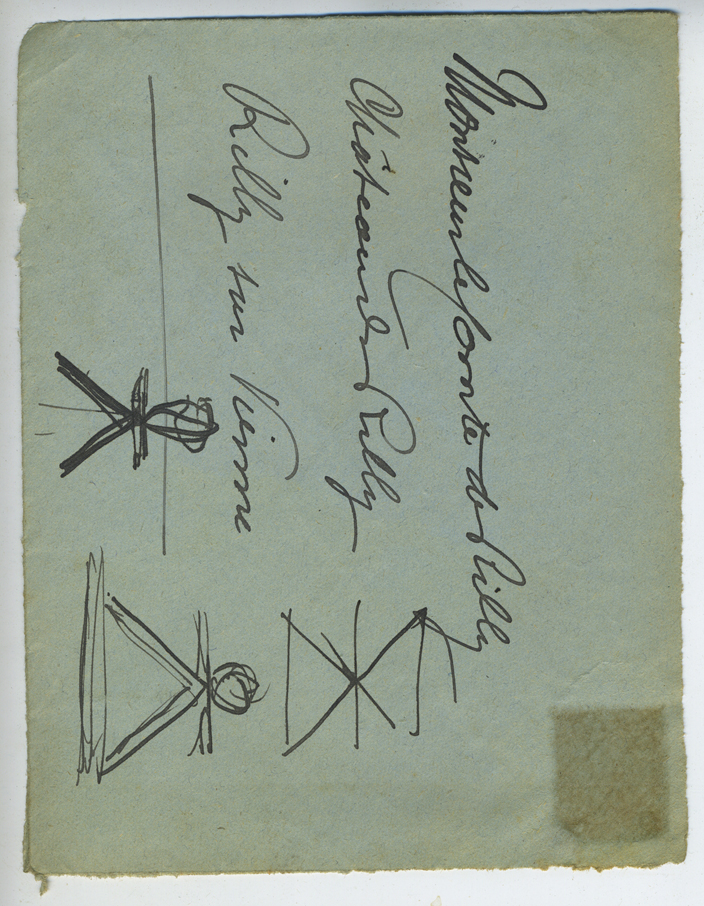 Monsieur le Comte de Rilly
Château de Rilly
Rilly sur Vienne